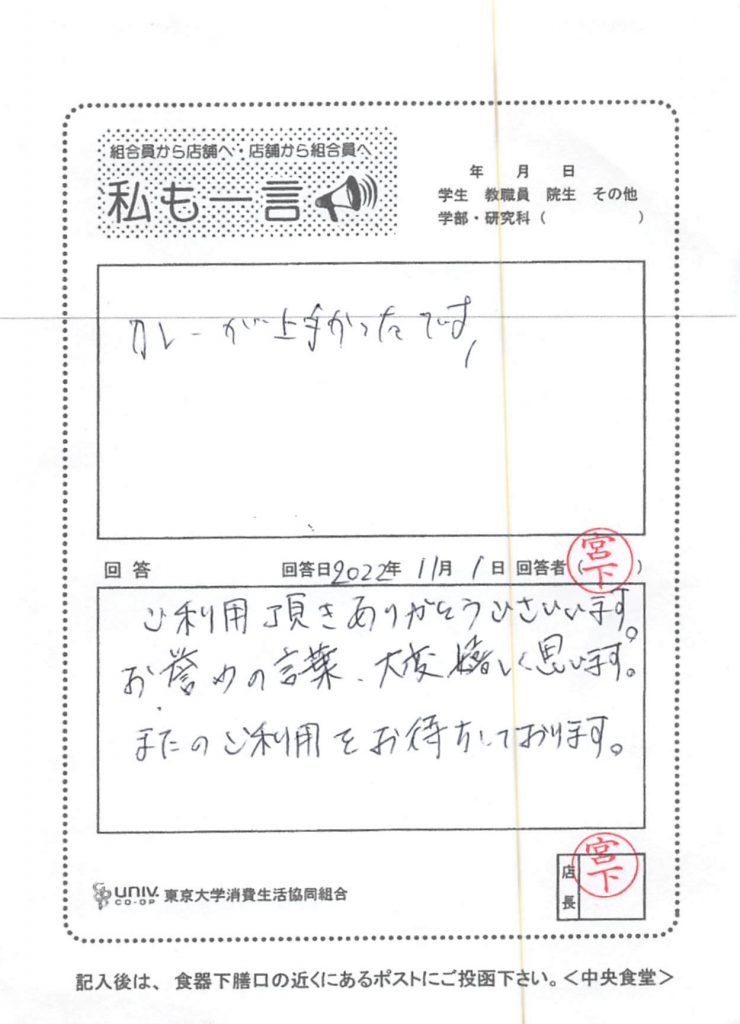 組合員から店舗へ・店舗から組合員へ
私も一言
年 月 日
学生 教職員 院生 その他
学部・研究科( )
カレーが上手かったです
回答 回答日2022年 11月 1日 回答者(宮下)
ご利用頂きありがとうございます。
お誉めの言葉、大変嬉しく思います。
またのご利用をお待ちしております。
宮下
店長
UNIV. CO-OP 東京大学消費生活協同組合
記入後は、食器下膳口の近くにあるポストにご投函下さい。<中央食堂>